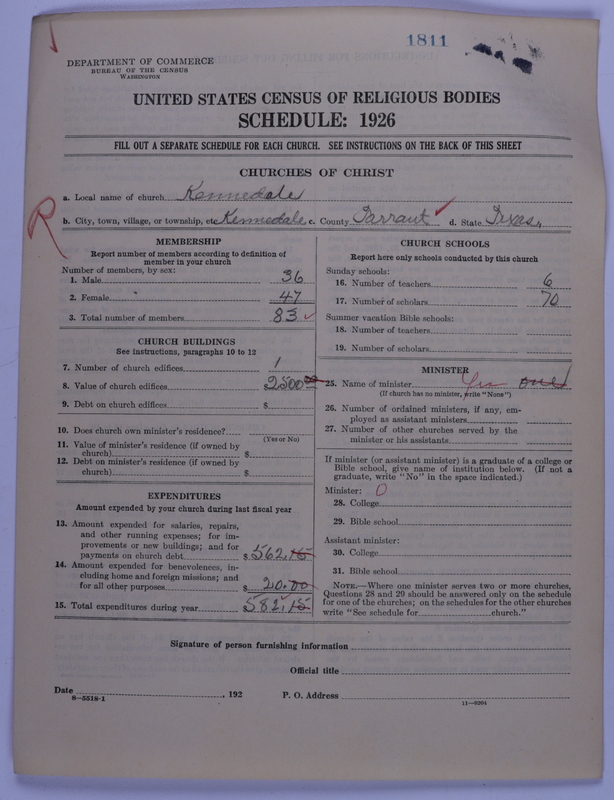 1811
DEPARTMENT OF COMMERCE
BUREAU OF THE CENSUS
WASHINGTON
UNITED STATES CENSUS OF RELIGIOUS BODIES
SCHEDULE: 1926
FILL OUT A SEPARATE SCHEDULE FOR EACH CHURCH. SEE INSTRUCTIONS ON THE BACK OF THIS SHEET
CHURCHES OF CHRIST
a. Local name of church Kennedale
R
b. City, town, village, or township, etc Kennedale c. County Tarrant d. State Texas
MEMBERSHIP
Report number of members according to definition of
member in your church
Number of members, by sex:
1. Male 36
2. Female 47
3. Total number of members 83
CHURCH BUILDINGS
See instructions, paragraphs 10 to 12
7. Number of church edifices 1
8. Value of church edifices $2500.00
9. Debt on church edifices $
10. Does church own minister's residence?
(Yes or No)
11. Value of minister's residence (if owned by
church) $
12. Debt on minister's residence (if owned by
church) $
EXPENDITURES
Amount expended by your church during last fiscal year
13. Amount expended for salaries, repairs,
and other running expenses; for im-
provements or new buildings; and for
payments on church debt $562.15
14. Amount expended for benevolences, in-
cluding home and foreign missions; and
for all other purposes $20.00
15. Total expenditures during year $582.15
CHURCH SCHOOLS
Report here only schools conducted by this church
Sunday schools:
16. Number of teachers 6
17. Number of scholars 70
Summer vacation Bible schools:
18. Number of teachers
19. Number of scholars
MINISTER
25. Name of minister Yes one
(If church has no minister, write "None")
26. Number of ordained ministers, if any, em-
ployed as assistant ministers
27. Number of other churches served by the
minister or his assistants
If minister (or assistant minister) is a graduate of a college or
Bible school, give name of institution below. (If not a
graduate, write "No" in the space indicated.)
Minister: 0
28. College
29. Bible school
Assistant minister:
30. College
31. Bible school
NOTE.—Where one minister serves two or more churches,
Questions 28 and 29 should be answered only on the schedule
for one of the churches; on the schedules for the other churches
write "See schedule for church."
Signature of person furnishing information
Official title
Date , 192 P. O. Address
8—5518-1 11—9204